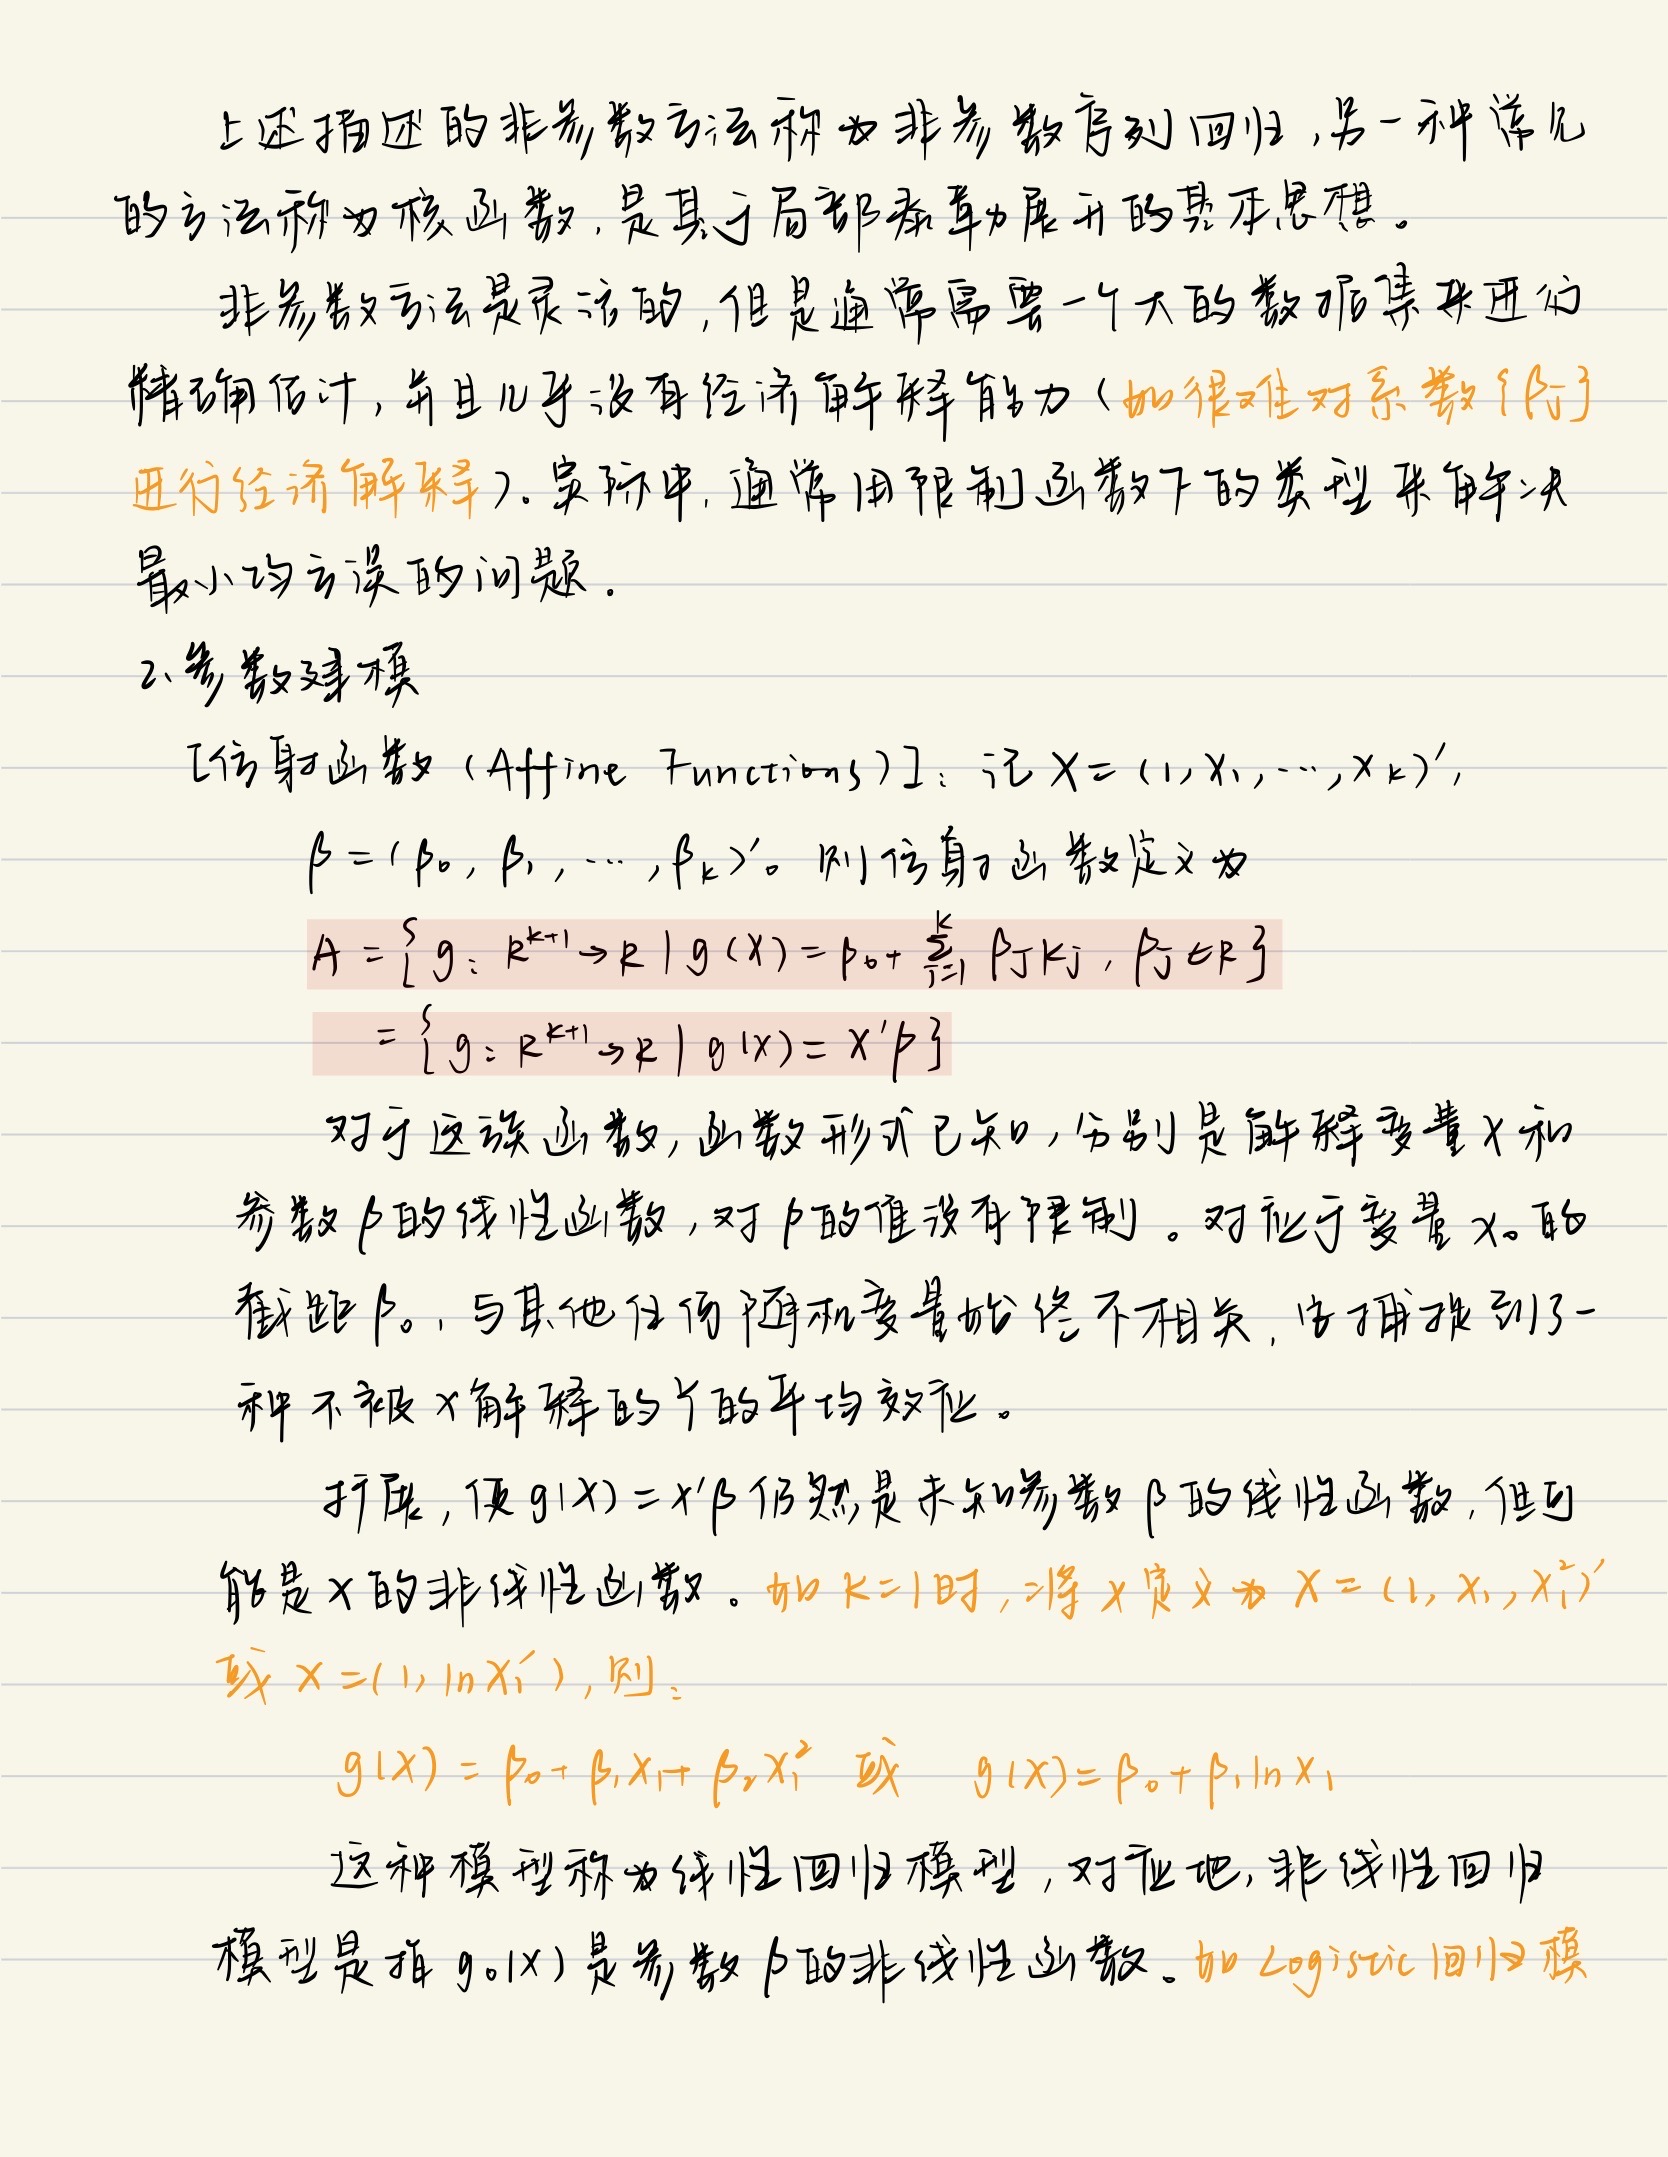 上述描述的非参数方法称为非参数序列回归,另一种常见
的方法称为核函数,是基于局部泰勒展开的基本思想。
非参数方法是灵活的,但是通常需要一个大的数据集来进行
精确估计,并且几乎没有经济解释能力(如很难对系数{βj}
进行经济解释)。实际中,通常用限制函数下的类型来解决
最小均方误的问题.
2、参数建模
[仿射函数(Affine Functions)]:记X=(1,X₁,…,Xk)′,
β=(β₀,β₁,…,βk)′。则仿射函数定义为
A={g:R^{k+1}→R|g(X)=β₀+∑_{j=1}^{k} βjKj,βj∈R}
={g:R^{k+1}→R|g(X)=X′β}
对于这族函数,函数形式已知,分别是解释变量X和
参数β的线性函数,对β的值没有限制。对应于变量X₀的
截距β₀,与其他任何随机变量始终不相关,它捕捉到了一
种不被X解释的Y的平均效应。
扩展,使g(X)=X′β仍然是未知参数β的线性函数,但可
能是X的非线性函数。如K=1时,将X定义为X=(1,X₁,X₁²)′
或X=(1,lnX₁′),则:
g(X)=β₀+β₁X₁+β₂X₁² 或 g(X)=β₀+β₁lnX₁
这种模型称为线性回归模型,对应地,非线性回归
模型是指g₀(X)是参数β的非线性函数。如Logistic回归模